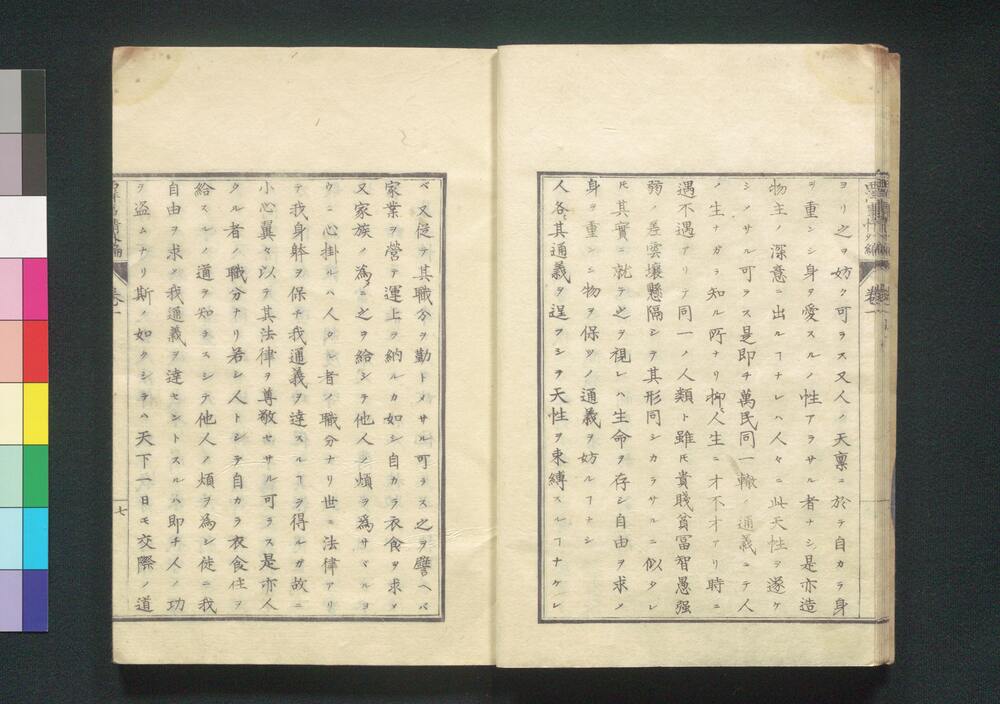 ヨリ之ヲ妨ク可ラス又人ノ天禀ニ於テ自カラ身
ヲ重ンシ身ヲ愛スルノ性アラサル者ナシ是亦造
物主ノ深意ニ出ルヿナレハ人々ニ此天性ヲ遂ケ
シメサル可ラス是即チ萬民同一轍ノ通義ニテ人
ノ生ナガラ知ル所ナリ抑人生ニ才不才アリ時ニ
遇不遇アリテ同一ノ人類ト雖𪜈貴賤貧冨智愚强
弱ノ差雲壤懸隔シテ其形同シカラサルニ似タレ
𪜈其實ニ就テ之ヲ視レハ生命ヲ存シ自由ヲ求メ
身ヲ重ンシ物ヲ保ツノ通義ヲ妨ルヿナシ
人各其通義ヲ逞フシテ天性ヲ束縛スルヿナケレ
巻一
ベ又従テ其職分ヲ勤トメサル可ラス之ヲ譬ヘバ
家業ヲ營テ運上ヲ納ルカ如シ自カラ衣食ヲ求メ
又家族ノ為メ之ヲ給シテ他人ノ煩ヲ為サヾルヨ
ウニ心掛ルハ人タル者ノ職分ナリ世ニ法律アリ
テ我身躰ヲ保チ我通義ヲ達スルヿヲ得ルガ故ニ
小心翼々以テ其法律ヲ尊敬セサル可ラス是亦人
タル者ノ職分ナリ若シ人トシテ自カラ衣食住ヲ
給スルノ道ヲ知ラスシテ他人ノ煩ヲ為シ徒ニ我
自由ヲ求メ我通義ヲ達セントスルハ即チ人ノ功
ヲ盗ムナリ斯ノ如クシテハ天下一日モ交際ノ道
巻一
七